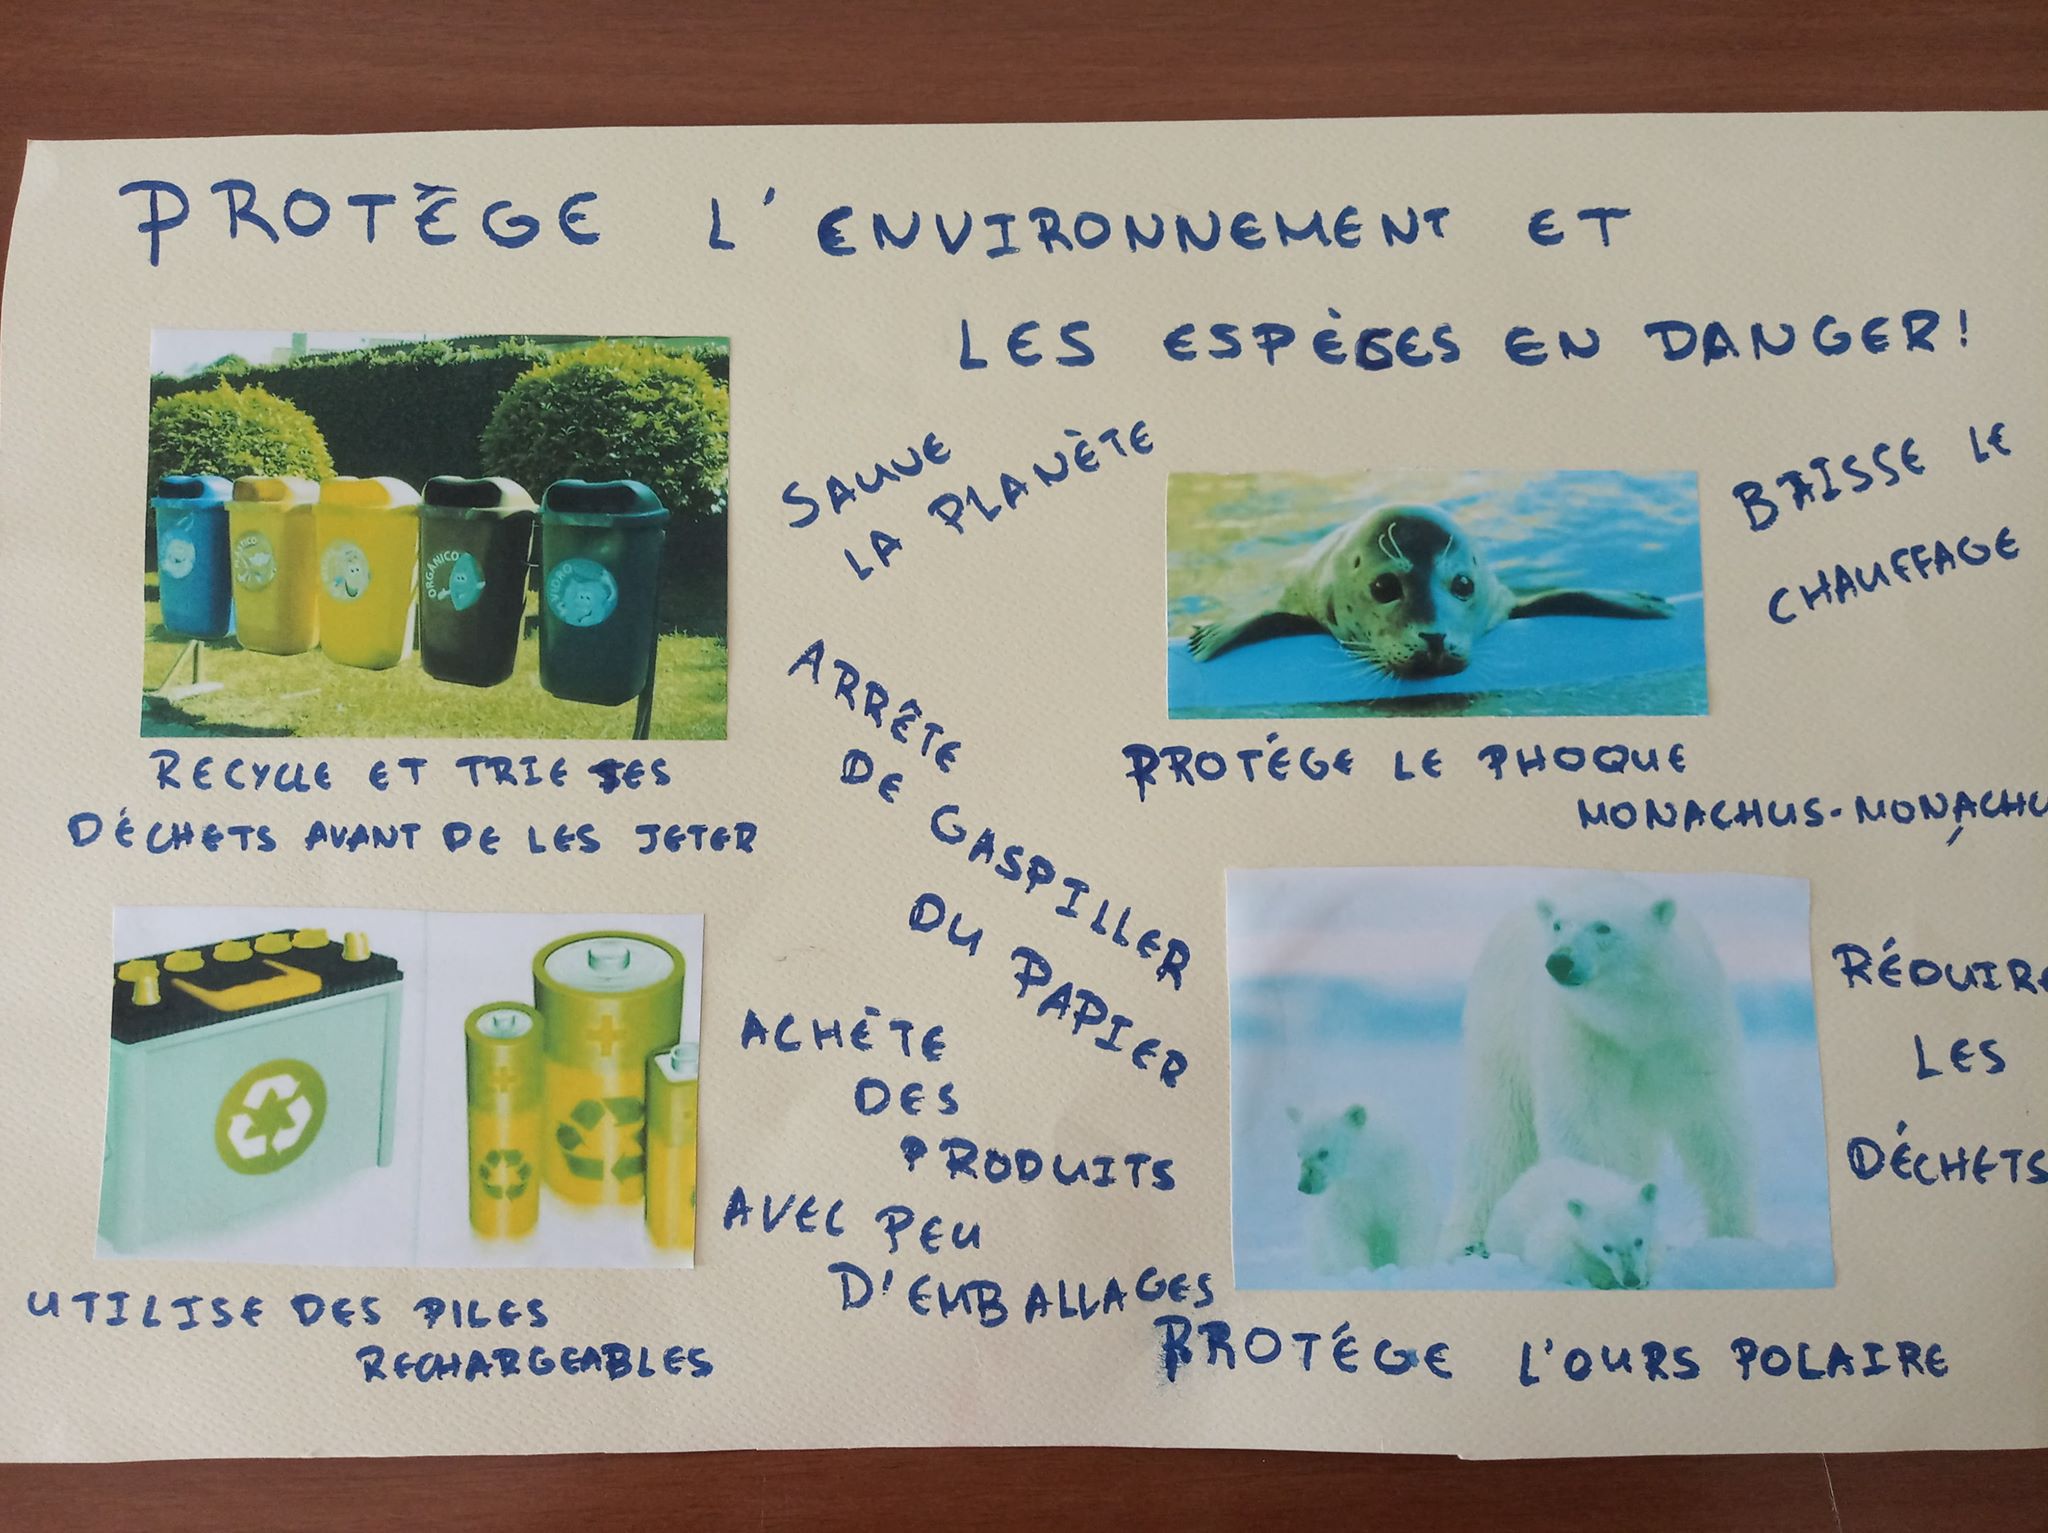 PROTÈGE L'ENVIRONNEMENT ET
LES ESPÈCES EN DANGER!
ORGÂNICO
VIDRO
RECYCLE ET TRIE SES
DÉCHETS AVANT DE LES JETER
SAUVE
LA PLANÈTE
BAISSE LE
CHAUFFAGE
PROTÉGE LE PHOQUE
MONACHUS-MONACHU
ARRÊTE
DE GASPILLER
DU PAPIER
ACHÈTE
DES
PRODUITS
AVEC PEU
D'EMBALLAGES
RÉDUIRE
LES
DÉCHETS
UTILISE DES PILES
RECHARGEABLES
PROTÉGE L'OURS POLAIRE